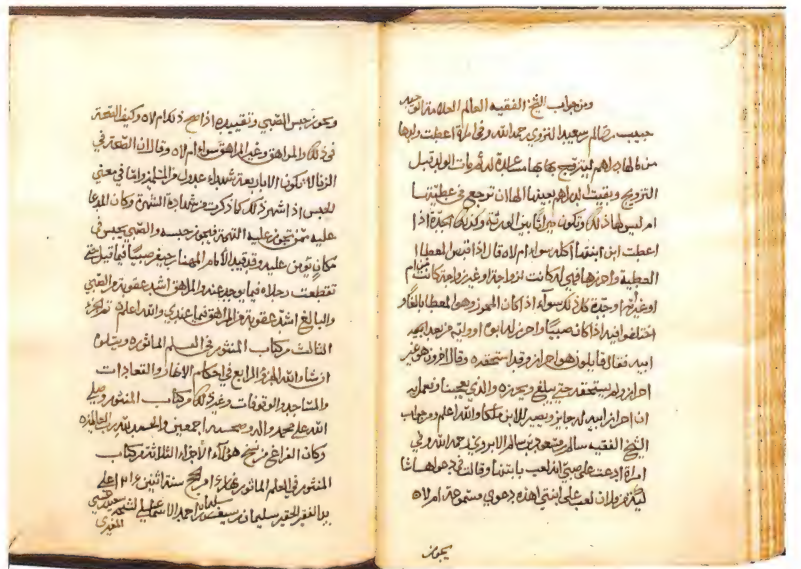 ومن جواب الشيخ الفقيه العالم العلامة
حبيب بن سالم سعيد النزوي رحمه الله وفي امرأة اعطت ولدها
من مالها دراهم ليتزوج بها مساعدة له ثم مات الولد قبل
التزويج وبقيت الدراهم بعينها الها ان ترجع في عطيتها
ام ليس لها ذلك وتكون ميراثا بين الورثة وكذلك الجدة اذا
اعطت ابن ابنتها أكله سواء ام لا قال اذا قبض المعطا
العطية واحرزها فهي له كانت لزواجة او غير زواجة كانت من ام
او غير ام او جدة كل ذلك سواء اذا كان المحرز وهو المعطا بالغا و
اختلفوا فيه اذا كان صبيا واحرز له ابوه او وليه من بعد
ابيه فقال قايلون هو احراز وقد استحقه وقال اخرون هو غير
احراز ولم يستحقه حتى يبلغ ويحرزه والذي يعجبنا ونعمل به
ان احراز ابيه له جايز ويصير للابن ملكا والله اعلم ومن جواب
الشيخ الفقيه سالم بن سالم رحمه الله وفي
امرأة ادعت على صبي انه لعب بابنتها وقالت في دعواها
فلان لعب على ابنتي اهذه دعوى مسموعة ام لا
يجوز
ويجوز حبس الصبي وتقييده اذا صح ذلك ام لا وكيف الصحة
في ذلك والمراهق وغير المراهق سواء ام لا وقال ان الصحة في
الزنا لا تكون الا باربعة شهداء عدول من المسلمين واما في معنى
الحبس اذا اشهر ذلك كما ذكرت من شهادة الشهرة وكان المدعا
عليه ممن تجوز عليه التهمة فيجوز حبسه والصبي يحبس في
مكان يؤمن عليه وقد قيد الامام المهنا جيفر صبيا فيما قيل حتى
تقطعت رجلاه فيما يوجد عنه والمراهق اشد عقوبة من الصبي
والبالغ اشد عقوبة من المراهق فيما عندي والله اعلم تم الجزء
الثالث من كتاب المنثور في العلم الماثور ويتلوه
ان شاء الله الجزء الرابع في احكام
والمساجد والوقوفات وغير ذلك من كتاب المنثور وصلى
الله على محمد وآله وصحبه اجمعين والحمد لله رب العالمين
وكان الفراغ من نسخ هؤلاء الأجزاء الثلاثة من كتاب
المنثور في العلم الماثور سنة اثنين
بيد الفقير الحقير سليمان بن سيف بن احمد